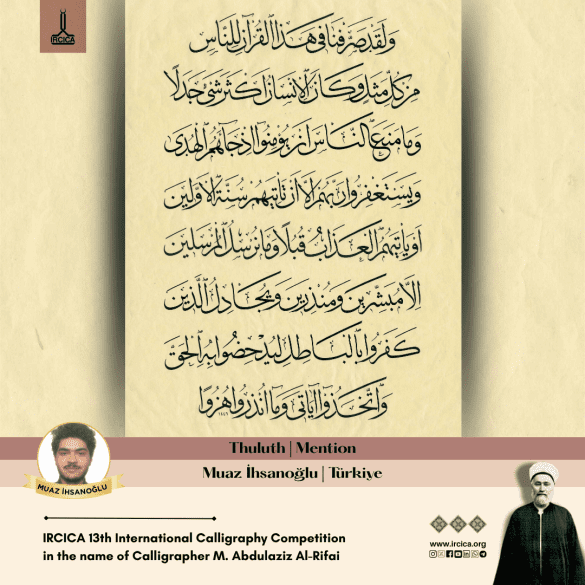 IRCICA
ولقد صرفنا في هذا القرآن للناس
من كل مثل وكان الإنسان أكثر شيء جدلا
وما منع الناس أن يؤمنوا إذ جاءهم الهدى
ويستغفروا ربهم إلا أن تأتيهم سنة الأولين
أو يأتيهم العذاب قبلا وما نرسل المرسلين
إلا مبشرين ومنذرين ويجادل الذين
كفروا بالباطل ليدحضوا به الحق
واتخذوا آياتي وما أنذروا هزوا
Thuluth | Mention
Muaz İhsanoğlu | Türkiye
MUAZ İHSANOĞLU
IRCICA 13th International Calligraphy Competition
in the name of Calligrapher M. Abdulaziz Al-Rifai
www.ircica.org